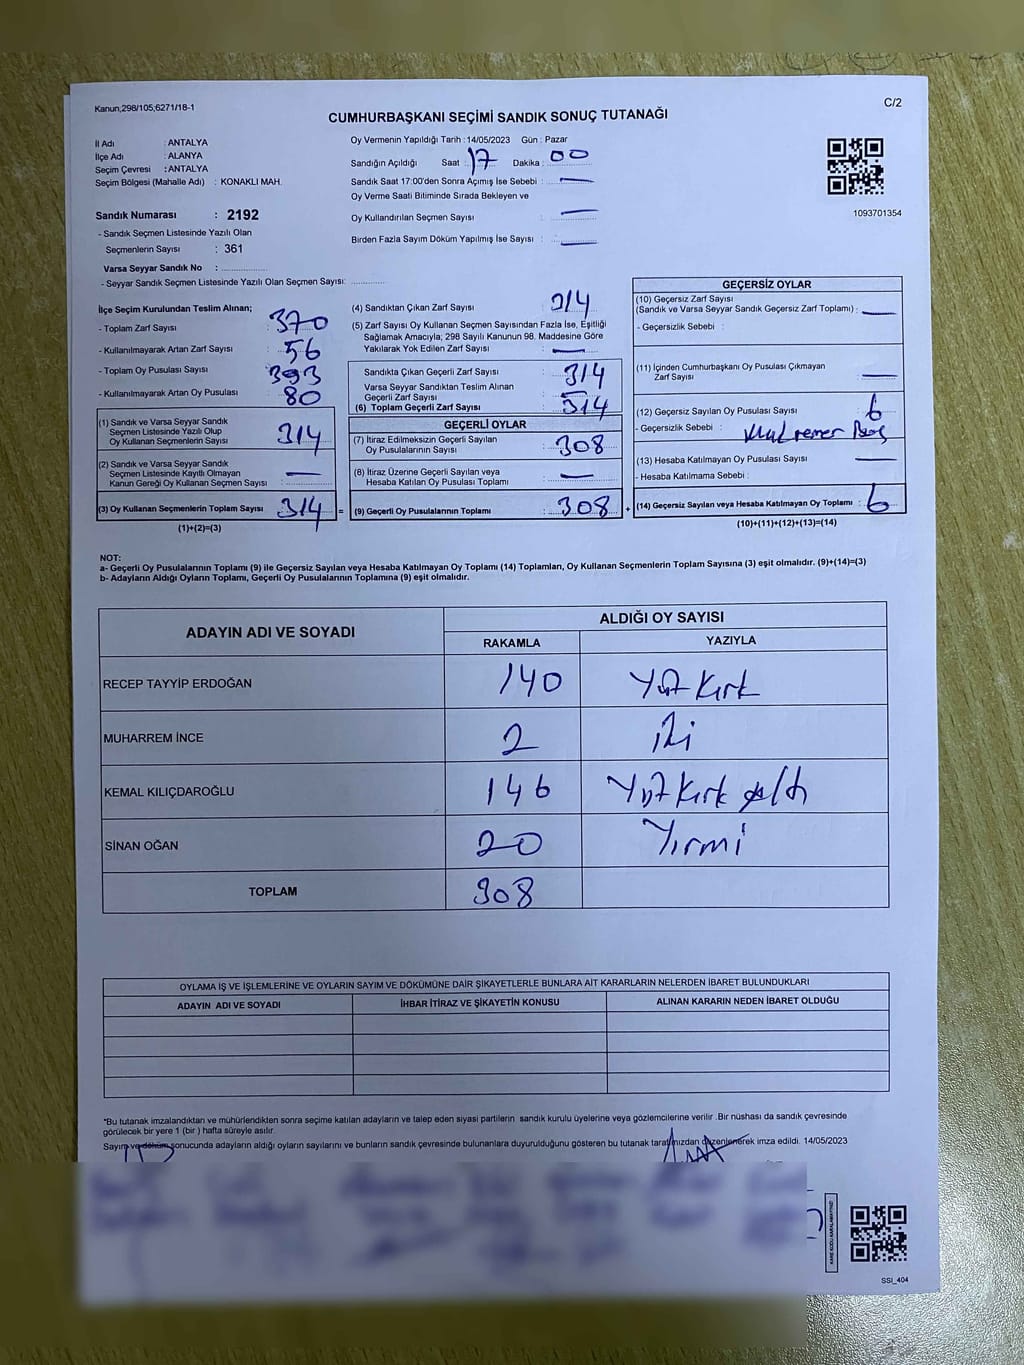 Kanun,298/105,6271/18-1
C/2
CUMHURBAŞKANI SEÇİMİ SANDIK SONUÇ TUTANAĞI
İl Adı : ANTALYA
İlçe Adı : ALANYA
Seçim Çevresi : ANTALYA
Seçim Bölgesi (Mahalle Adı) : KONAKLI MAH.
Sandık Numarası : 2192
- Sandık Seçmen Listesinde Yazılı Olan
Seçmenlerin Sayısı : 361
Varsa Seyyar Sandık No :
- Seyyar Sandık Seçmen Listesinde Yazılı Olan Seçmen Sayısı:
Oy Vermenin Yapıldığı Tarih : 14/05/2023 Gün : Pazar
Sandığın Açıldığı Saat : 17 Dakika : 00
Sandık Saat 17:00'den Sonra Açımış İse Sebebi : —
Oy Verme Saati Bitiminde Sırada Bekleyen ve
Oy Kullandırılan Seçmen Sayısı : —
Birden Fazla Sayım Döküm Yapılmış İse Sayısı : —
1093701354
İlçe Seçim Kurulundan Teslim Alınan;
- Toplam Zarf Sayısı : 370
- Kullanılmayarak Artan Zarf Sayısı : 56
- Toplam Oy Pusulası Sayısı : 393
- Kullanılmayarak Artan Oy Pusulası : 80
(1) Sandık ve Varsa Seyyar Sandık
Seçmen Listesinde Yazılı Olup
Oy Kullanan Seçmenlerin Sayısı : 314
(2) Sandık ve Varsa Seyyar Sandık
Seçmen Listesinde Kayıtlı Olmayan
Kanun Gereği Oy Kullanan Seçmen Sayısı : —
(3) Oy Kullanan Seçmenlerin Toplam Sayısı : 314 =
(1)+(2)=(3)
(4) Sandıktan Çıkan Zarf Sayısı : 314
(5) Zarf Sayısı Oy Kullanan Seçmen Sayısından Fazla İse, Eşitliği
Sağlamak Amacıyla; 298 Sayılı Kanunun 98. Maddesine Göre
Yakılarak Yok Edilen Zarf Sayısı : —
Sandıkta Çıkan Geçerli Zarf Sayısı : 314
Varsa Seyyar Sandıktan Teslim Alınan
Geçerli Zarf Sayısı :
(6) Toplam Geçerli Zarf Sayısı : 314
GEÇERLİ OYLAR
(7) İtiraz Edilmeksizin Geçerli Sayılan
Oy Pusulasının Sayısı : 308
(8) İtiraz Üzerine Geçerli Sayılan veya
Hesaba Katılan Oy Pusulası Toplamı : —
(9) Geçerli Oy Pusulalarının Toplamı : 308 +
GEÇERSİZ OYLAR
(10) Geçersiz Zarf Sayısı
(Sandık ve Varsa Seyyar Sandık Geçersiz Zarf Toplamı) : —
- Geçersizlik Sebebi :
(11) İçinden Cumhurbaşkanı Oy Pusulası Çıkmayan
Zarf Sayısı : —
(12) Geçersiz Sayılan Oy Pusulası Sayısı : 6
- Geçersizlik Sebebi :
(13) Hesaba Katılmayan Oy Pusulası Sayısı : —
- Hesaba Katılmama Sebebi :
(14) Geçersiz Sayılan veya Hesaba Katılmayan Oy Toplamı : 6
(10)+(11)+(12)+(13)=(14)
NOT:
a- Geçerli Oy Pusulalarının Toplamı (9) ile Geçersiz Sayılan veya Hesaba Katılmayan Oy Toplamı (14) Toplamları, Oy Kullanan Seçmenlerin Toplam Sayısına (3) eşit olmalıdır. (9)+(14)=(3)
b- Adayların Aldığı Oyların Toplamı, Geçerli Oy Pusulalarının Toplamına (9) eşit olmalıdır.
ADAYIN ADI VE SOYADI
ALDIĞI OY SAYISI
RAKAMLA YAZIYLA
RECEP TAYYİP ERDOĞAN 140 Yüz Kırk
MUHARREM İNCE 2 iki
KEMAL KILIÇDAROĞLU 146 Yüz Kırk altı
SİNAN OĞAN 20 Yirmi
TOPLAM 308
OYLAMA İŞ VE İŞLEMLERİNE VE OYLARIN SAYIM VE DÖKÜMÜNE DAİR ŞİKAYETLERLE BUNLARA AİT KARARLARIN NELERDEN İBARET BULUNDUKLARI
ADAYIN ADI VE SOYADI İHBAR İTİRAZ VE ŞİKAYETİN KONUSU ALINAN KARARIN NEDEN İBARET OLDUĞU
*Bu tutanak imzalandıktan ve mühürlendikten sonra seçime katılan adayların ve talep eden siyasi partilerin sandık kurulu üyelerine veya gözlemcilerine verilir .Bir nüshası da sandık çevresinde
görülecek bir yere 1 (bir ) hafta süreyle asılır.
Sayım ve döküm sonucunda adayların aldığı oyların sayılarını ve bunların sandık çevresinde bulunanlara duyurulduğunu gösteren bu tutanak tarafımızdan düzenlenerek imza edildi. 14/05/2023
KARE KODU KARALAMAYINIZ!
SSI_404